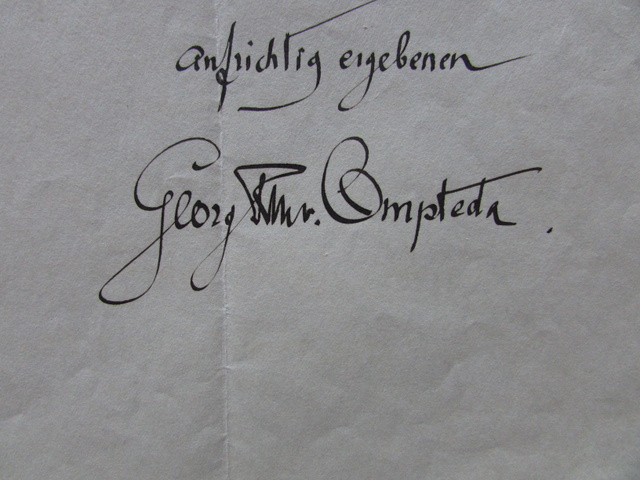 aufrichtig ergebenen
Georg Frhr. Ompteda.